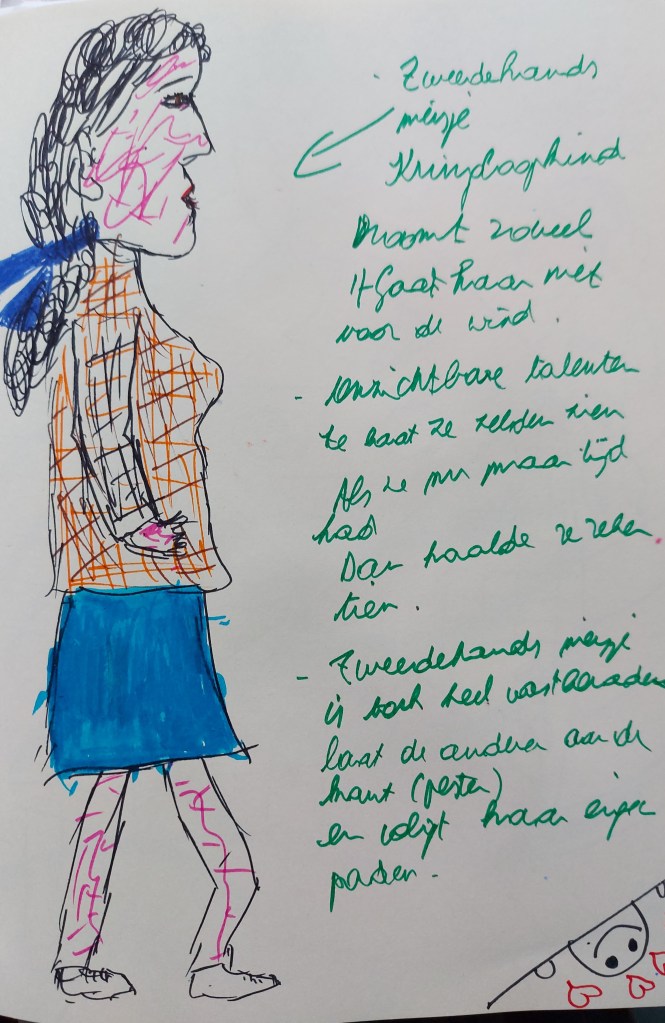 - Tweedehands
meisje
Kringloopkind
Droomt zoveel
't Gaat haar niet
voor de wind.
- Onzichtbare talenten
Ze laat ze zelden zien
Als ze nu maar tijd
had
Dan haalde ze zeker
tien.
- Tweedehands meisje
is toch heel vastberaden
laat de anderen aan de
kant (pesten)
en volgt haar eigen
paden.